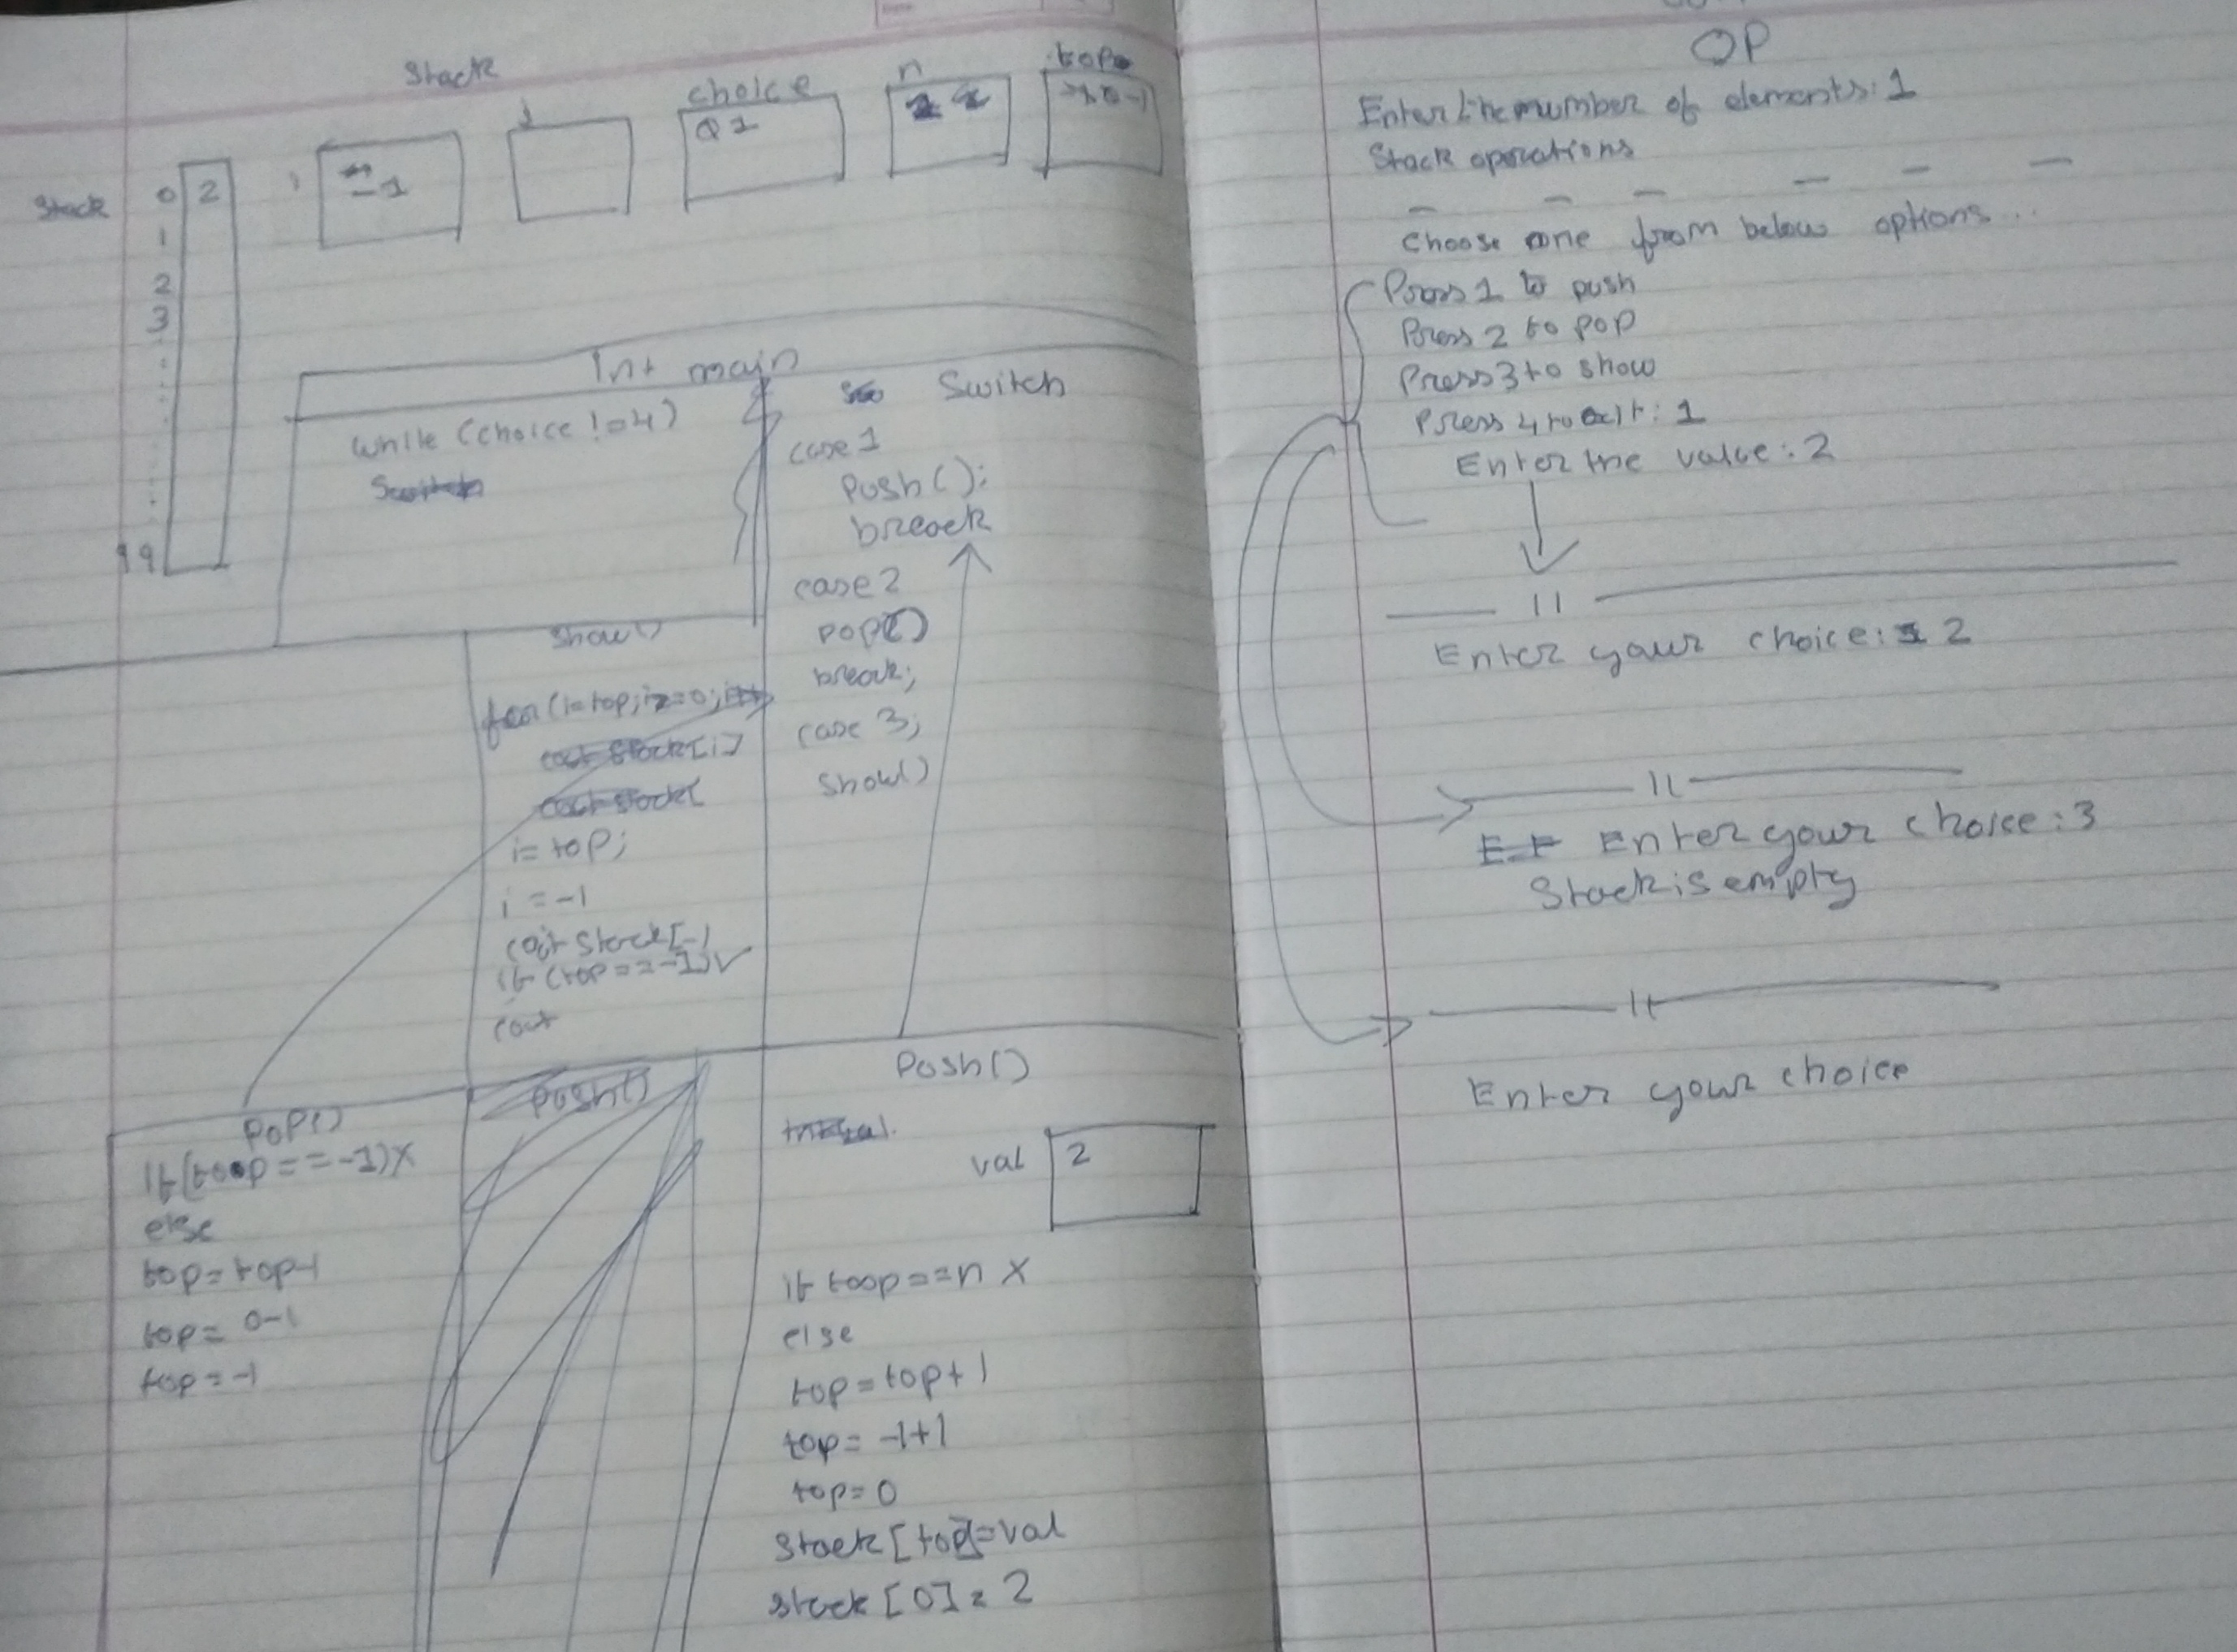 Stack
i
choice
0 1
n
top
-1
Stack
0 2
1
2
3
99
Int main
while (choice != 4)
Switch
case 1
Push();
breack
case 2
pop()
break;
case 3;
show()
show()
for (i=top; i>=0;
i = top;
i = -1
cout stack[-1
if (top == -1) ✓
cout
POP()
If (top == -1) X
else
top = top-1
top = 0-1
top = -1
Push()
val 2
if top == n X
else
top = top+1
top = -1+1
top = 0
Stack [top] = val
stack [0] = 2
OP
Enter the number of elements: 1
Stack operations
Choose one from below options..
Press 1 to push
Press 2 to pop
Press 3 to show
Press 4 to exit: 1
Enter the value: 2
— 11 —
Enter your choice: 2
— 11 —
Enter your choice: 3
Stack is empty
— 11 —
Enter your choice